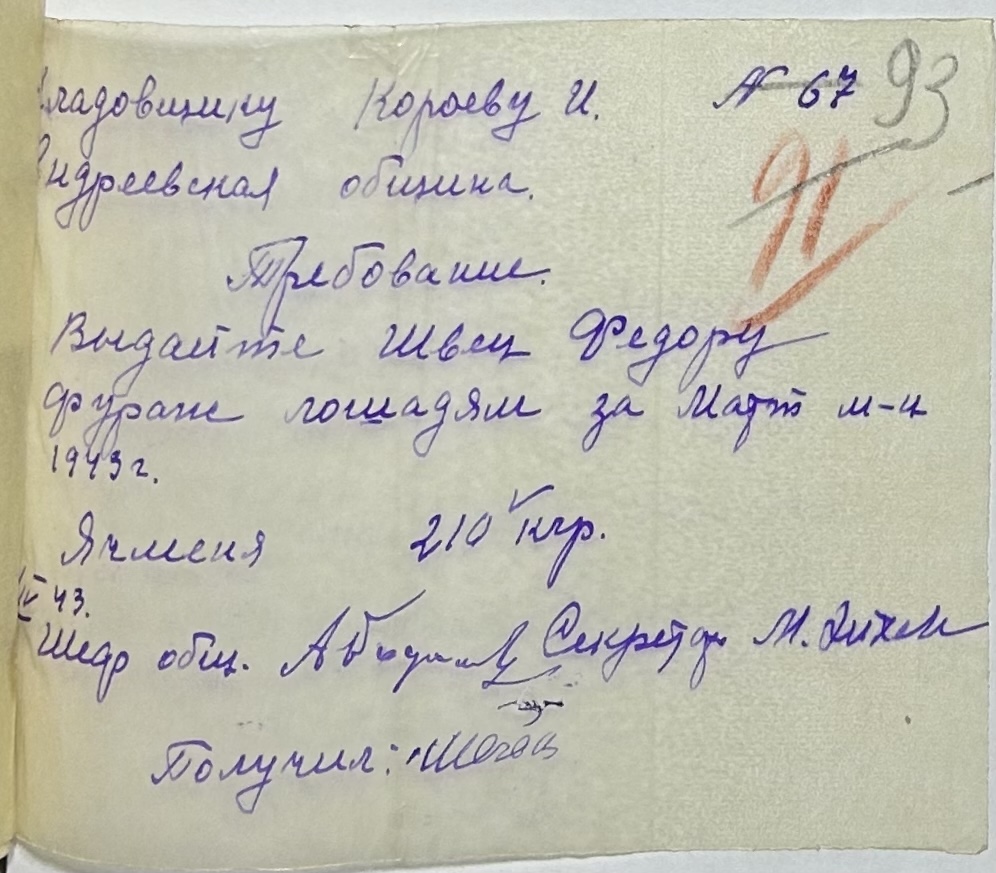 Кладовщику Короеву И. № 67 93
Андреевская община. 91
Требование.
Выдайте Швец Федору
фураж лошадям за Март м-ц
1943 г.
Ячменя 210 кгр.
IV 43.
Шеф общ. Секретарь М.
Получил: